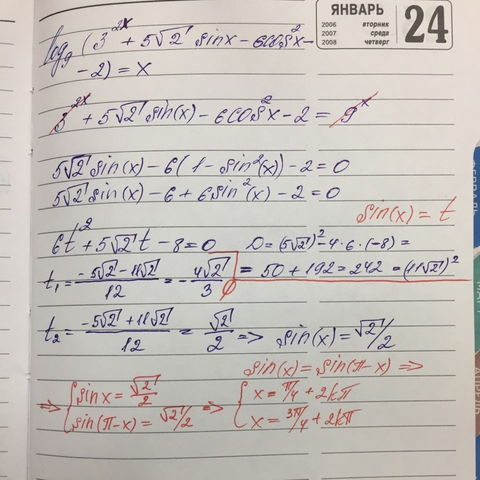 ЯНВАРЬ
2006 вторник
2007 среда
2008 четверг
24
log₉ (3^(2x) + 5√2 sinx - 6cos²x -
- 2) = x
3^(2x) + 5√2 sin(x) - 6cos²x - 2 = 9^x
5√2 sin(x) - 6(1 - sin²(x)) - 2 = 0
5√2 sin(x) - 6 + 6sin²(x) - 2 = 0
sin(x) = t
6t² + 5√2 t - 8 = 0
D = (5√2)² - 4·6·(-8) =
= 50 + 192 = 242 = (11√2)²
t₁ = (-5√2 - 11√2)/12 = -4√2/3 ∅
t₂ = (-5√2 + 11√2)/12 = √2/2 => sin(x) = √2/2
sin(x) = sin(π-x) =>
=> { sinx = √2/2
sin(π-x) = √2/2
=> { x = π/4 + 2kπ
x = 3π/4 + 2kπ